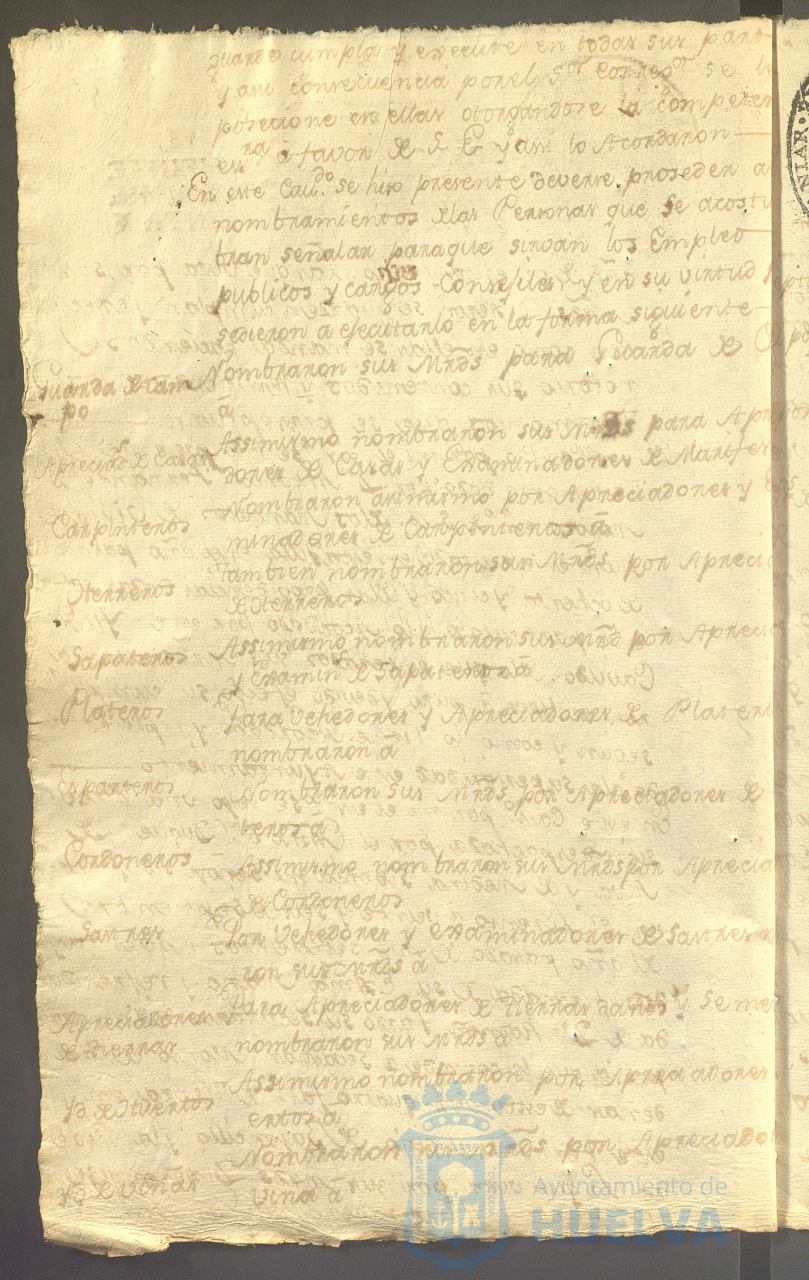 guarde cumpla y execute en todas sus part
y asi consecuencia por el Sor Correor se le
posecione en ellas otorgandose la competen
esra a favor de S. E. y asi lo Acordaron
En este Caudo se hiso presente deverse proseder a
nombramientos de las Personas que se acost
bran señalar para que sirvan los Empleo
publicos y cargos Consejiles y en su virtud
sedieron a efecutarlo en la forma siguiente
Guarda de Cam
po
Nombraron sus Mrds para Guarda de
a
Apreciads de Casas
Assimismo nombraron sus Mrds para Apre
dores de Casas y Examinadores de
Carpinteros
Nombraron asimismo por Apreciadores y
minadores de Carpinteros a
Herreros
tambien nombraron sus Mrds por Apreci
de Herreros
Sapateros
Assimismo nombraron sus Mrd por Apreci
y Examin de Sapateros a
Plateros
Para Vehedores y Apreciadores de Plater
nombraron a
Esparteros
Nombraron sus Mrds por Apreciadores de
teros a
Cordoneros
Assimismo nombraron sus Mrds por Aprecia
de Cordoneros
Sastres
Por Vehedores y examinadores de Sastres
ron sus Mrds a
Apreciadores
de tierras
Para Apreciadores de tierras daños y seme
nombraron sus Mrds a
Yd de Huertos
Assimismo nombraron por Apreciadores
ertos a
Yd de Viñas
Nombraron sus Mrds por Apreciado
Viña a
Ayuntamiento de
HUELVA
NIAR